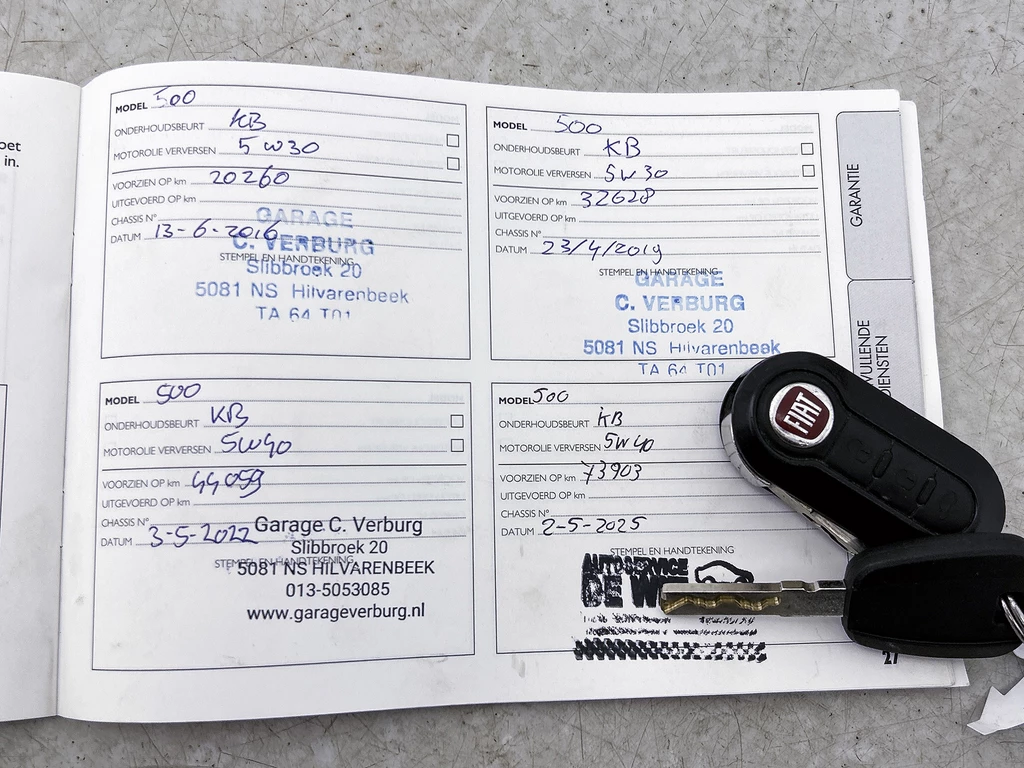 oet
in.
MODEL 500
ONDERHOUDSBEURT KB
MOTOROLIE VERVERSEN 5W30
VOORZIEN OP km 20260
UITGEVOERD OP km
CHASSIS N°
DATUM 13-6-2016
STEMPEL EN HANDTEKENING
GARAGE
C. VERBURG
Slibbroek 20
5081 NS Hilvarenbeek
TA 64 T01
MODEL 500
ONDERHOUDSBEURT KB
MOTOROLIE VERVERSEN 5W30
VOORZIEN OP km 32628
UITGEVOERD OP km
CHASSIS N°
DATUM 23/4/2019
STEMPEL EN HANDTEKENING
GARAGE
C. VERBURG
Slibbroek 20
5081 NS Hilvarenbeek
TA 64 T01
MODEL 500
ONDERHOUDSBEURT KB
MOTOROLIE VERVERSEN 5W40
VOORZIEN OP km 44059
UITGEVOERD OP km
CHASSIS N°
DATUM 3-5-2022
STEMPEL EN HANDTEKENING
Garage C. Verburg
Slibbroek 20
5081 NS HILVARENBEEK
013-5053085
www.garageverburg.nl
MODEL 500
ONDERHOUDSBEURT KB
MOTOROLIE VERVERSEN 5W40
VOORZIEN OP km 73903
UITGEVOERD OP km
CHASSIS N°
DATUM 2-5-2025
STEMPEL EN HANDTEKENING
AUTOSERVICE
DE W
GARANTIE
VULLENDE
DIENSTEN
FIAT
27